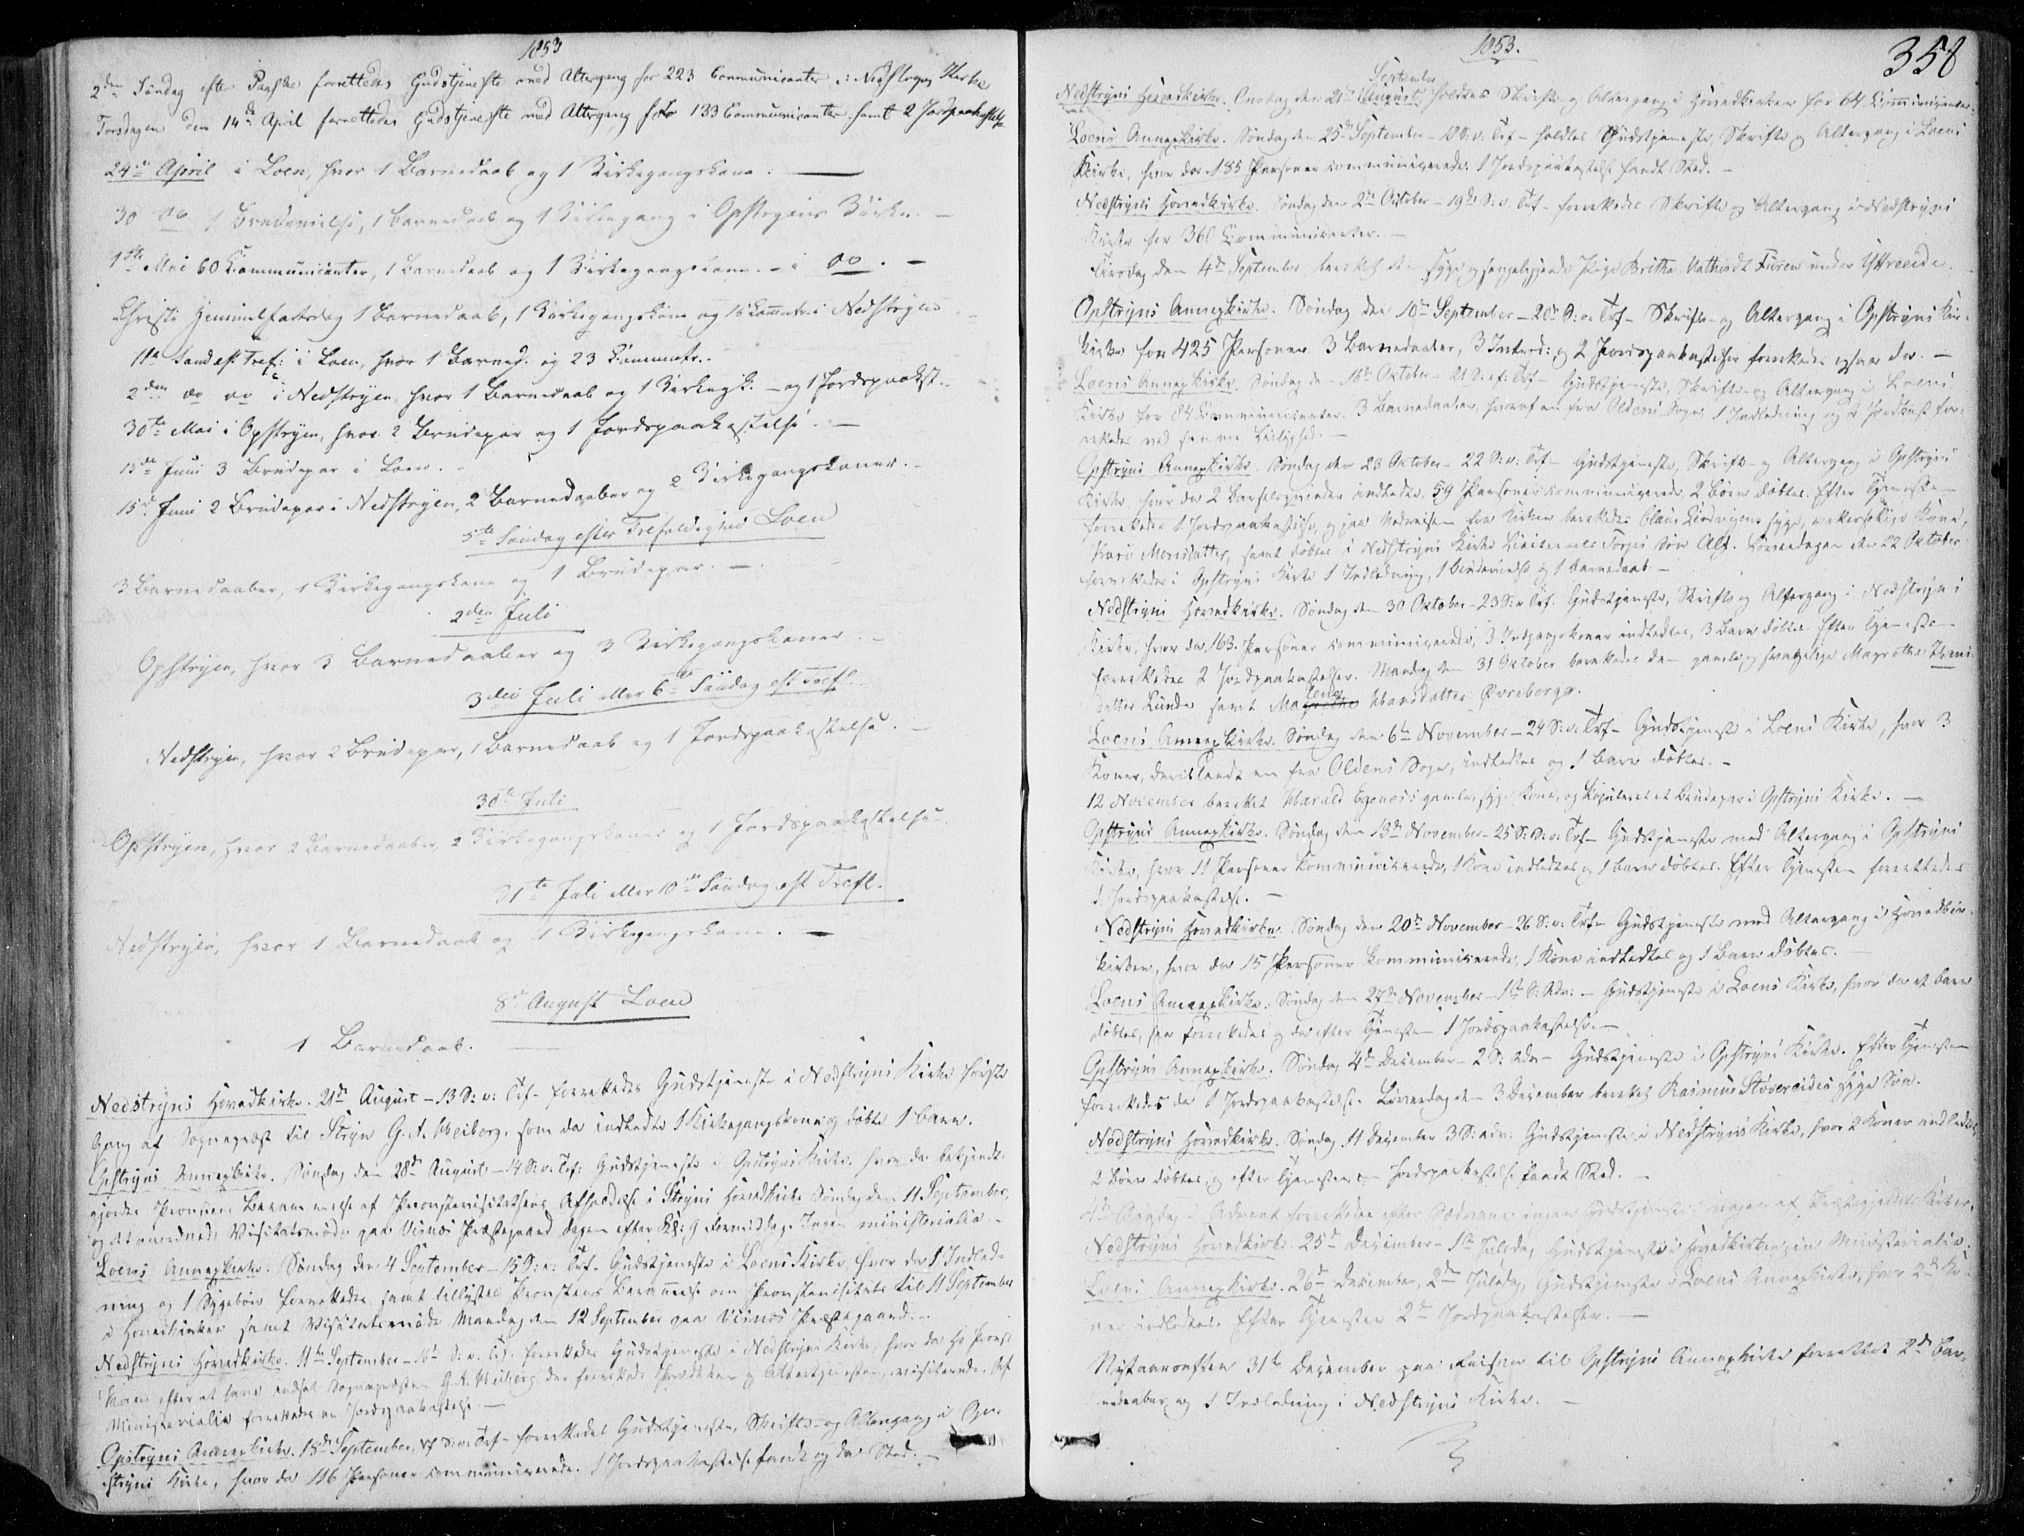 1853
2den Søndag efter Paaske forrettedes Gudstjeneste med Altergang for 223 Communicanter i Nedstryns Kirke
Torsdagen den 14de April forrettedes Gudstjeneste med Altergang for 133 Communicanter samt 2 Jordspaakastelse
24de April i Loen, hvor 1 Barnedaab og 1 Kirkegangskone. —
30 do 1 Brudevielse, 1 Barnedaab og 1 Kirkegang i Opstryns Kirke. —
1ste Mai 60 Communicanter, 1 Barnedaab og 1 Kirkegangskone. – i do. –
Christi Himmelfartsdag 1 Barnedaab, 1 Kirkegangskone og 16 Commtr. i Nedstryen
1ste Sønd. eft. Tref: i Loen, hvor 1 Barned. og 23 Commntr.
2den do do i Nedstryen, hvor 1 Barnedaab og 1 Kirkegk. – og 1 Jordspaakst.
30te Mai i Opstryen, hvor 2 Brudepar og 1 Jordspaakastelse. —
13de Juni 3 Brudepar i Loen. –
15de Juni 2 Brudepar i Nedstryen, 2 Barnedaaber og 2 Kirkegangskoner. –
5te Søndag efter Trefoldighed Loen
3 Barnedaaber, 1 Kirkegangskone og 1 Brudepar. —
2den Juli
Opstryen, hvor 3 Barnedaaber og 3 Kirkegangskoner. –
3die Juli eller 6te Søndag eft Trefl.
Nedstryen, hvor 2 Brudepar, 1 Barnedaab og 1 Jordspaakastelse. —
30te Juli
Opstryen, hvor 2 Barnedaaber, 2 Kirkegangskoner og 1 Jordspaakastelse
31te Juli eller 10de Søndag eft Trefl.
Nedstryen, hvor 1 Barnedaab og 1 Kirkegangskone. —
8de August Loen
1 Barnedaab. —
Nedstryns Hovedkirke. 21de August – 13 S: e: Tref – forrettedes Gudstjeneste i Nedstryns Kirke første
Gang af Sognepræst til Stryn G. A. Meiberg, som da indledte 1 Kirkegangskone og døbte 1 Barn.
Opstryns Annexkirke. Søndag den 28de August – 14 S: e: Tref: Gudstjeneste i Opstryns Kirke, hvor da bekjendt-
gjordes Provstens Berammelse af Provstevisitatsens Afholdelse i Stryns Hovedkirke Søndag den 11 September,
og det anordnede Visitatsmøde paa Visnæs Præstegaard Dagen efter Kl: 9 Formiddag. Ingen ministerialia –
Loens Annexkirke. Søndag den 4 September – 15 S: e: Tref. Gudstjeneste i Loens Kirke, hvor da 1 Indled-
ning og 1 forrettedes, samt tillystes Provstens Berammelse om Provstevisitats til 11 September
i Hovedkirken samt Visitatsmøde Mandag den 12 September paa Visnæs Præstegaard. –
Nedstryns Hovedkirke. 11te September – 16de S: e: Tref. forrettedes Gudstjeneste i Nedstryns Kirke, hvor da Hr Provst
efter at have indsat Sognepræsten G. A. Meiberg, der forrettede Prædiken og Altertjenesten, visiterede. Af
Ministerialia forrettedes en Jordspaakastelse. —
Opstryns Annexkirke. 18de September, 17 S: e: Tref – forrettedes Gudstjeneste, Skrifte- og Altergang i Op-
stryns Kirke, hvor da 116 Personer communicerede. 1 Jordspaakastelse fandt og da Sted. —
1853.
358
Nedstryns Hovedkirke. Onsdag den 21de September holdtes Skrifte- og Altergang i Hovedkirken for 64 Communicanter.
Loens Annexkirke. Søndag den 25de September – 18 S: e: Tref – holdtes Gudstjeneste, Skrifte- og Altergang i Loens
Kirke, hvor da 185 Personer communicerede. 1 Jordspaakastelse fandt Sted. –
Nedstryns Hovedkirke. Søndag den 2den Oktober – 19de S: e: Tref – forrettedes Skrifte- og Altergang i Nedstryns
Kirke for 360 Communicanter. –
Tirsdag den 4de September berettet den syge og sengeliggende Pige Britha Mathisdt Furen under Ytreeide.
Opstryns Annexkirke. Søndag den 10de September – 20de S: e: Tref – Skrifte- og Altergang i Opstryns Kir-
kirke for 425 Personer. 3 Barnedaaber, 3 Introd: og 2 Jordspaakastelser forrettedes ogsaa da. –
Loens Annexkirke. Søndag den 16de Oktober – 21 S: ef: Tref – Gudstjeneste, Skrifte- og Altergang i Loens
Kirke for 84 Communicanter. 3 Barnedaaber, hvoraf en fra Oldens Sogn, 1 Indledning og 2 Jordkast for-
rettedes ved samme Leilighed. –
Opstryns Annexkirke. Søndag den 23 Oktober – 22 S: e: Tref – Gudstjeneste, Skrifte- og Altergang i Opstryns
Kirke, hvor da 2 Barselqvinder indledtes, 59 Personer communicerede, 2 Børn døbtes. Efter Tjenesten
forrettedes 1 Jordspaakastelse, og paa Nedreisen fra Kirken berettedes syge Kone,
Kari Monsdatter, samt døbtes i Nedstryns Kirke Søn Alf. Løverdagen den 22 Oktober
forrettedes i Opstryns Kirke 1 Indledning, 1 Brudevielse og 1 Barnedaab. –
Nedstryns Hovedkirke. Søndag den 30 Oktober – 23 S: e: Tref. Gudstjeneste, Skrifte- og Altergang i Nedstryns
Kirke, hvor da 163 Personer communicerede, 3 Indgangskoner indledtes, 3 Barn døbtes. Efter Tjenesten
forrettedes 2 Jordpaakastelser. Mandag den 31 Oktober berettedes den gamle og svagelige Magrethe
datter Lunde samt Malene Hansdatter Øvreberge.
Loens Annexkirke. Søndag den 6te November – 24 S: e: Tref – Gudstjeneste i Loens Kirke, hvor 3
Koner, deriblandt en fra Oldens Sogn, indledtes og 1 Barn døbtes. –
12 November berettet Harald Egenes's gamle, syge Kone, og kopuleret et Brudepar i Opstryns Kirke. —
Opstryns Annexkirke. Søndag den 13de November – 25 S: e: Tref – Gudstjeneste med Altergang i Opstryns
Kirke, hvor 11 Personer kommunicerede, 1 Kone indledtes og 1 Barn døbtes. Efter Tjenesten forrettedes
1 Jordspaakastelse. —
Nedstryns Hovedkirke. Søndag den 20de November – 26 S: e: Tref – Gudstjeneste med Altergang i Hovedkir-
kirken, hvor da 15 Personer kommunicerede, 1 Kone indledtes og 1 Barn døbtes. –
Loens Annexkirke. Søndag den 27de November – 1ste S: Adv: – Gudstjeneste i Loens Kirke, hvor da et Barn
døbtes, forrettedes og da efter Tjenesten 1 Jordspaakastelse. –
Opstryns Annexkirke. Søndag 4de December – 2 S: Adv – Gudstjeneste i Opstryns Kirke. Efter Tjenesten
forrettedes da 1 Jordspaakastelse. Løverdag den 3 December berettet Rasmus Støvereides syge Søn.
Nedstryns Hovedkirke. Søndag 11 December 3 S: adv: Gudstjeneste i Nedstryns Kirke, hvor 2 Koner indledtes,
2 Børn døbtes, og efter Tjenesten en Jordspaakastelse fandt Sted. –
4de Søndag i Advent forrettedes efter Sædvane ingen Gudstjeneste i nogen af Præstegjeldets Kirker.
Nedstryns Hovedkirke. 25de December – 1ste Juledag Gudstjeneste i Hovedkirken, ingen Ministerialia.
Loens Annexkirke. 26de December, 2den Juledag, Gudstjeneste i Loens Annexkirke, hvor 2de Ko-
ner indledtes. Efter Tjenesten 2de Jordspaakastelser. —
Nytaarsaften 31te December paa Reisen til Opstryns Annexkirke forrettet 2de Bar-
nedaaber og 1 Indledning i Nedstryns Kirke. –